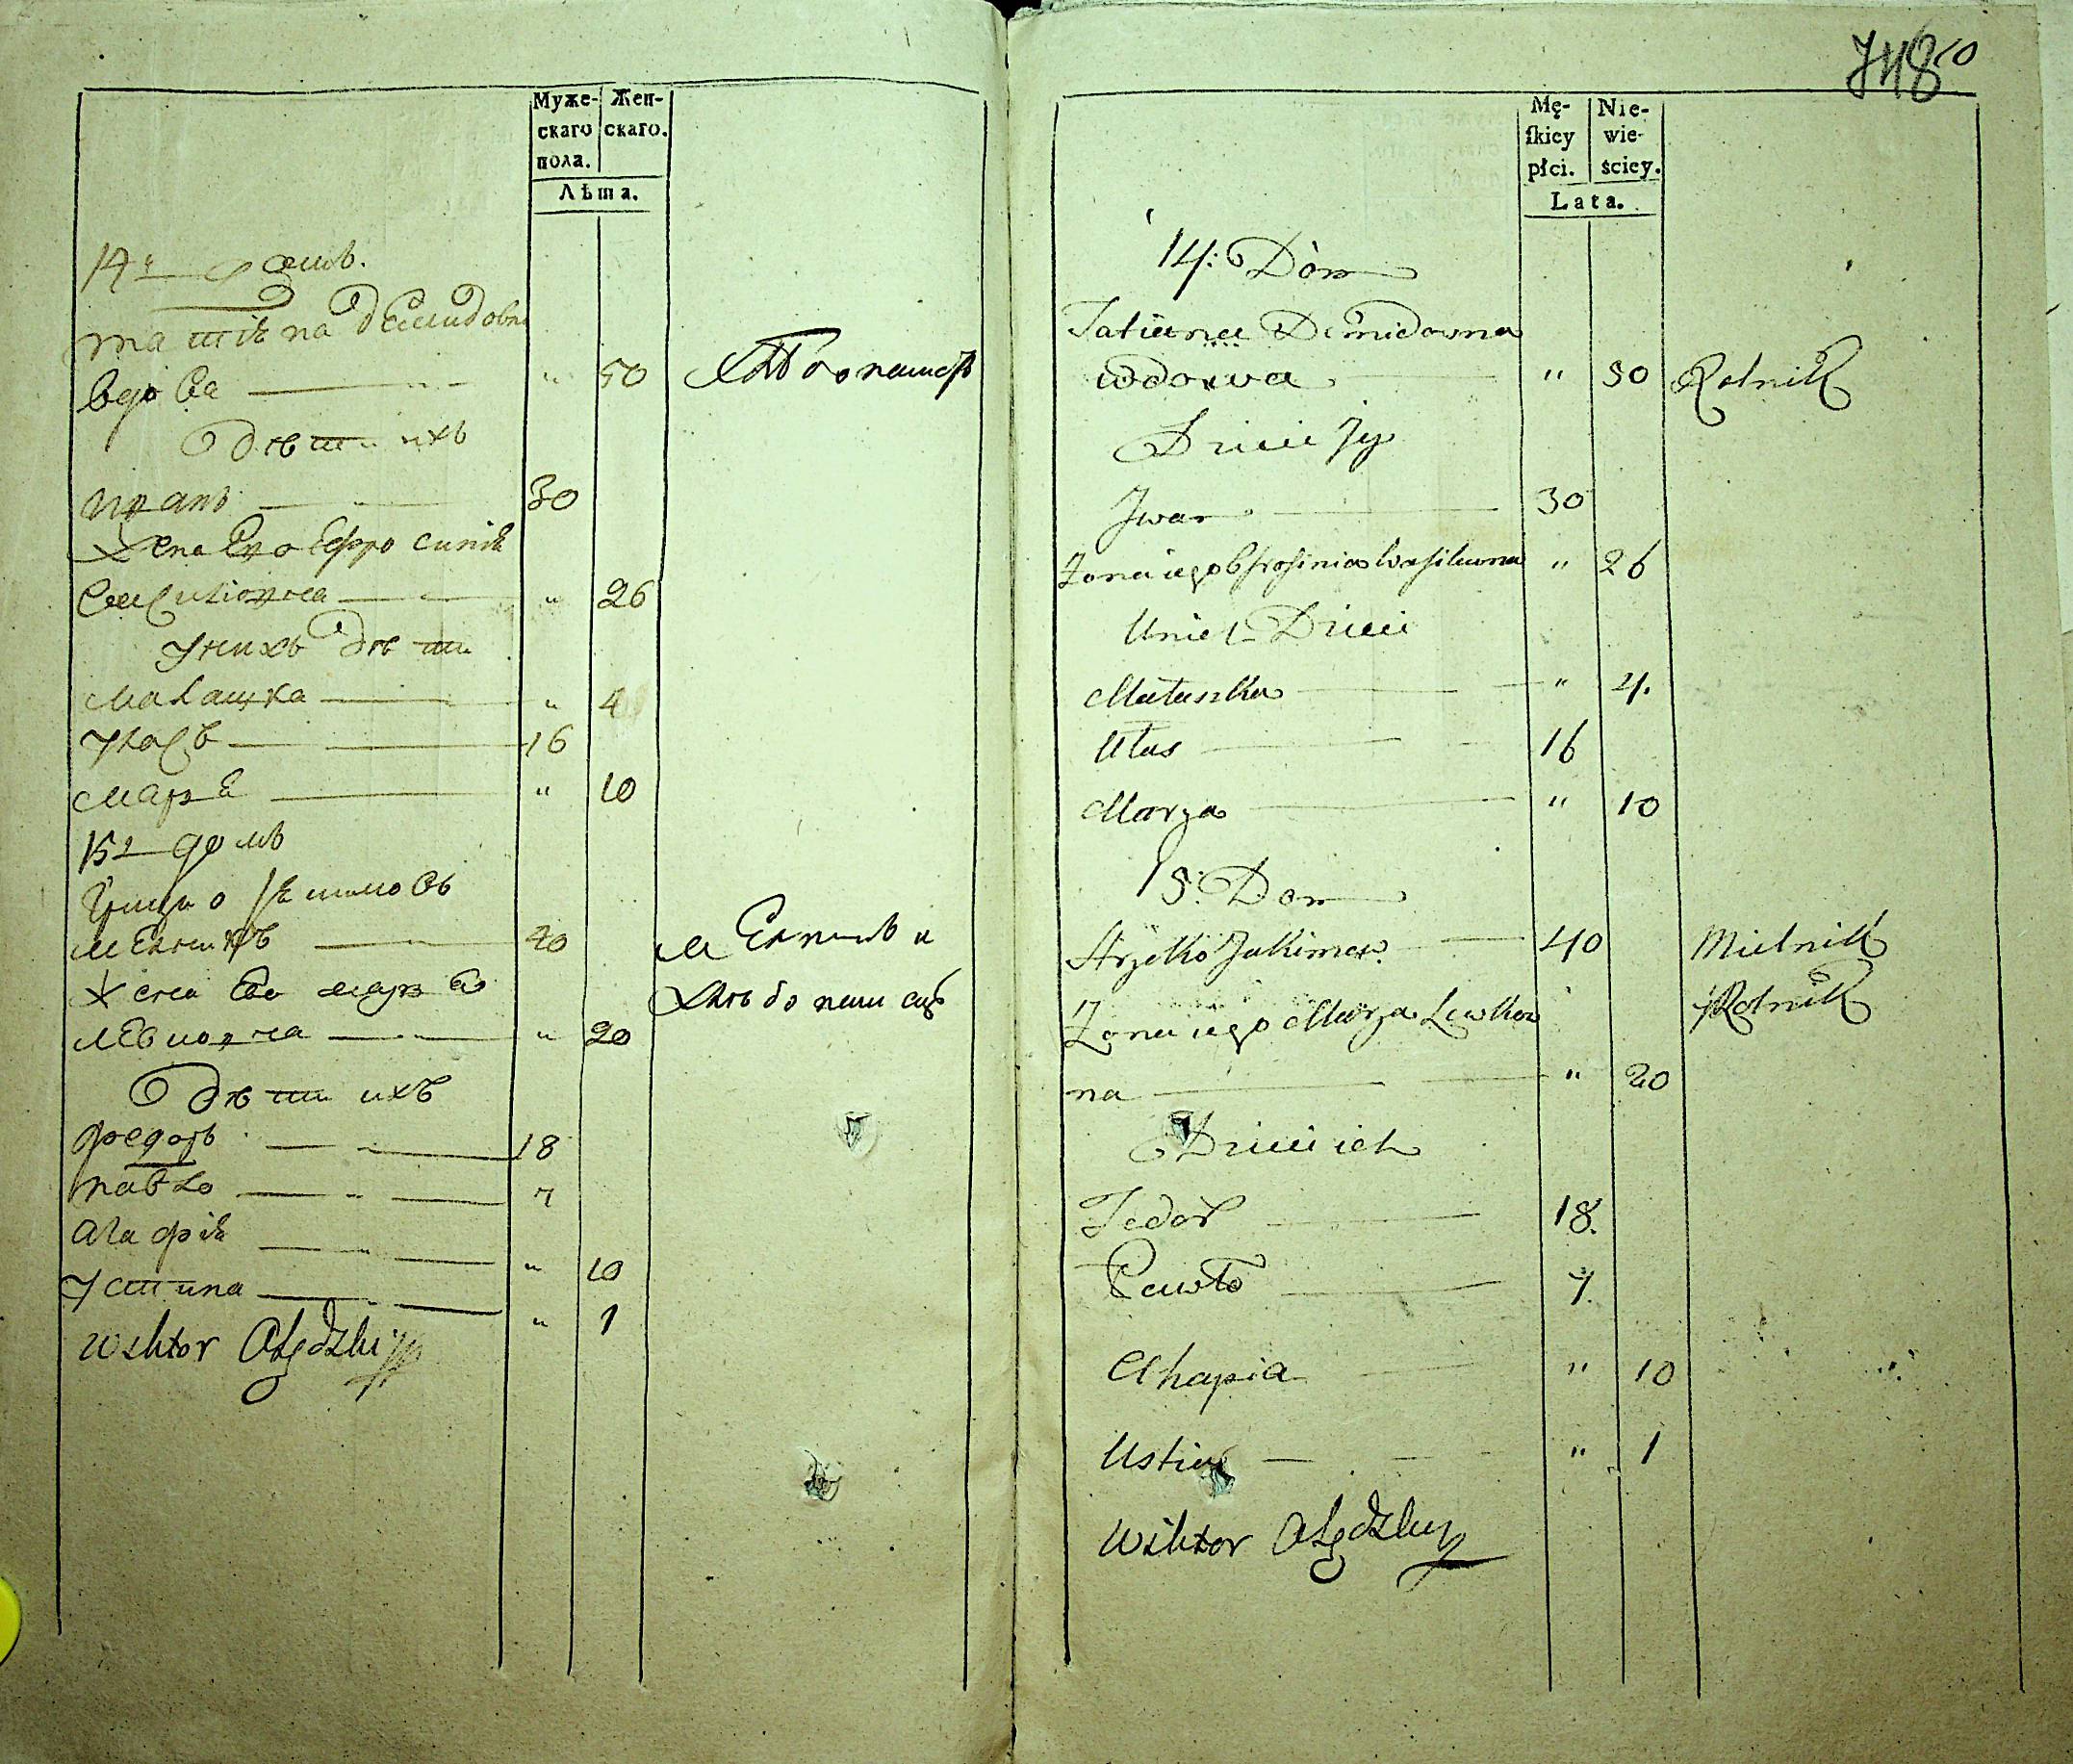 Муже-
скаго
пола.
Жен-
скаго.
Лѣта.
14й домъ.
татіяна демидовна
вдова " 50 Хлѣбопашецъ
дѣти ихъ
иванъ 30
жена Его Ефросинія
" 26
Унихъ дѣти
малашка " 4
Уласъ 16
маря " 10
15й домъ
Грицко Якимовъ
мелникъ 40 мелникъ и
жена Ево маря хлѣбопашецъ
левковна " 20
дѣти ихъ
федоръ 18
павло 7
агафія " 10
Устина " 1
Wiktor
748 10
Mę-
skiey
płci.
Nie-
wie-
ściey.
Lata.
14: Dom
Tatiana Demidowna
wdowa " 50 Rolnik
Dzieci Jey
Jwan 30
Zona iego Efrosinia Wasilewna " 26
Unich Dzieci
Małaszka " 4.
Ułas 16
Marya " 10
15: Dom
Hryćko Jakimow 40 Mielnik
Zona iego Marya Lewkow y Rolnik
na " 20
Dzieci ich
Fedor 18.
Pawło 7.
Ahapia " 10
Ustina " 1
Wiktor